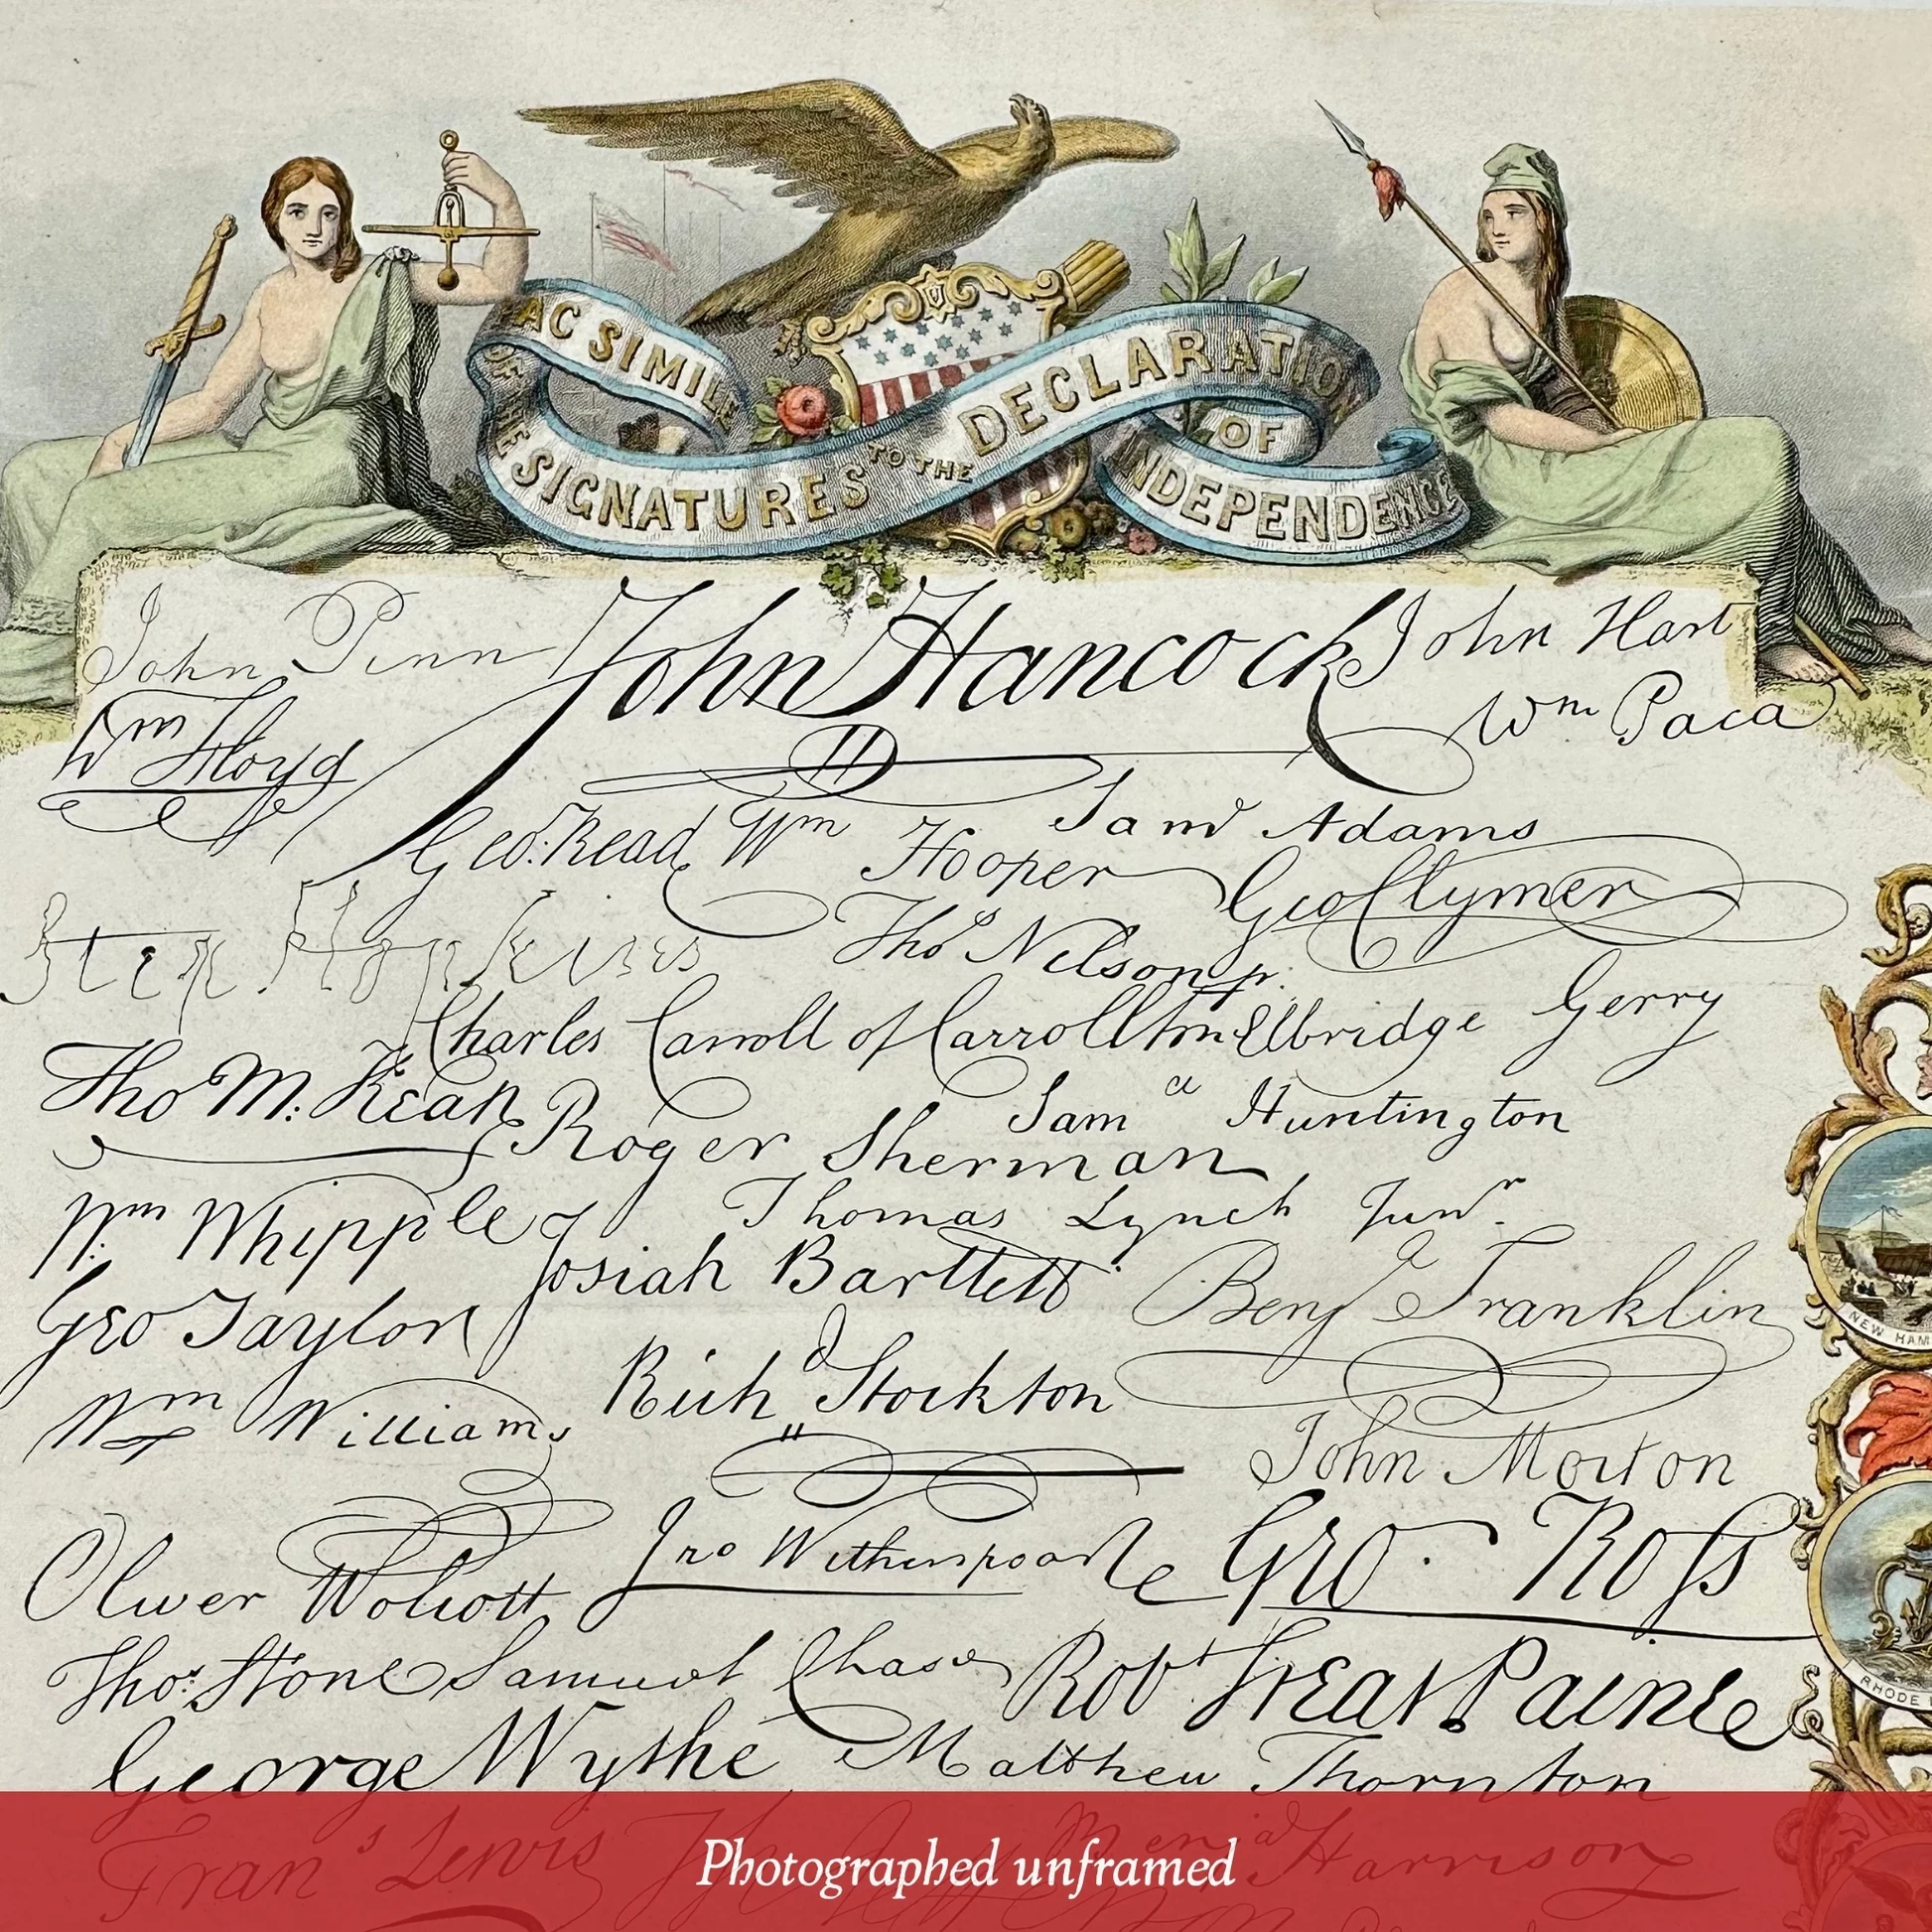 FAC SIMILE
OF THE SIGNATURES TO THE DECLARATION
OF
INDEPENDENCE
John Penn John Hancock John Hart
Wm Floyd Wm Paca
Geo. Read Wm Hooper Saml Adams
Geo Clymer
Step Hopkins Thos Nelson jr.
Charles Carroll of Carrollton Elbridge Gerry
Tho M: Kean Saml Huntington
Roger Sherman
Wm Whipple Thomas Lynch Junr.
Josiah Bartlett Benj Franklin
Geo Taylor
Richd Stockton
Wm Williams John Morton
Oliver Wolcott Jno Witherspoon Geo. Ross
Thos. Stone Samuel Chase Robt Treat Paine
George Wythe Matthew Thornton
Frans Lewis Benja Harrison
NEW HAM
RHODE
Photographed unframed